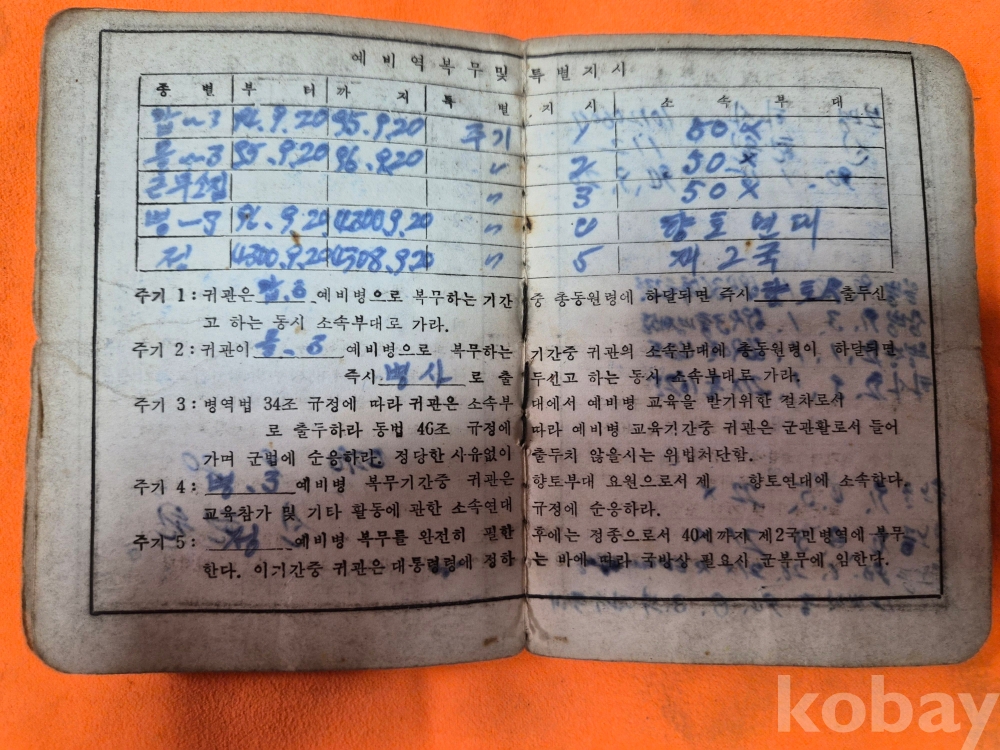 예비역복무및 특별지시
종별 부터 까지 특별지시 소속부대
갑-3 94.9.20 95.9.20 주기 1 50X
을-3 95.9.20 96.9.20 〃 2 50X
근무소집 〃 3 50X
병-3 96.9.20 4300.9.20 〃 4 향토연대
정 4300.9.20 4308.9.20 〃 5 제2국
주기 1: 귀관은 갑.3 예비병으로 복무하는 기간 중 총동원령에 하달되면 즉시 출두신
고 하는 동시 소속부대로 가라.
주기 2: 귀관이 을.3 예비병으로 복무하는 기간중 귀관의 소속부대에 총동원령이 하달되면
즉시 병사 로 출두선고 하는 동시 소속부대로 가라.
주기 3: 병역법 34조 규정에 따라 귀관은 소속부대에서 예비병 교육을 받기위한 절차로서
로 출두하라 동법 46조 규정에 따라 예비병 교육기간중 귀관은 군관활로서 들어
가며 군법에 순응하라. 정당한 사유없이 출두치 않을시는 위법처단함.
주기 4: 병.3 예비병 복무기간중 귀관은 향토부대 요원으로서 제 향토연대에 소속한다.
교육참가 및 기타 활동에 관한 소속연대 규정에 순응하라.
주기 5: 정 예비병 복무를 완전히 필한 후에는 정종으로서 40세까지 제2국민병역에 복무
한다. 이기간중 귀관은 대통령령에 정하는 바에 따라 국방상 필요시 군복무에 임한다.
kobay